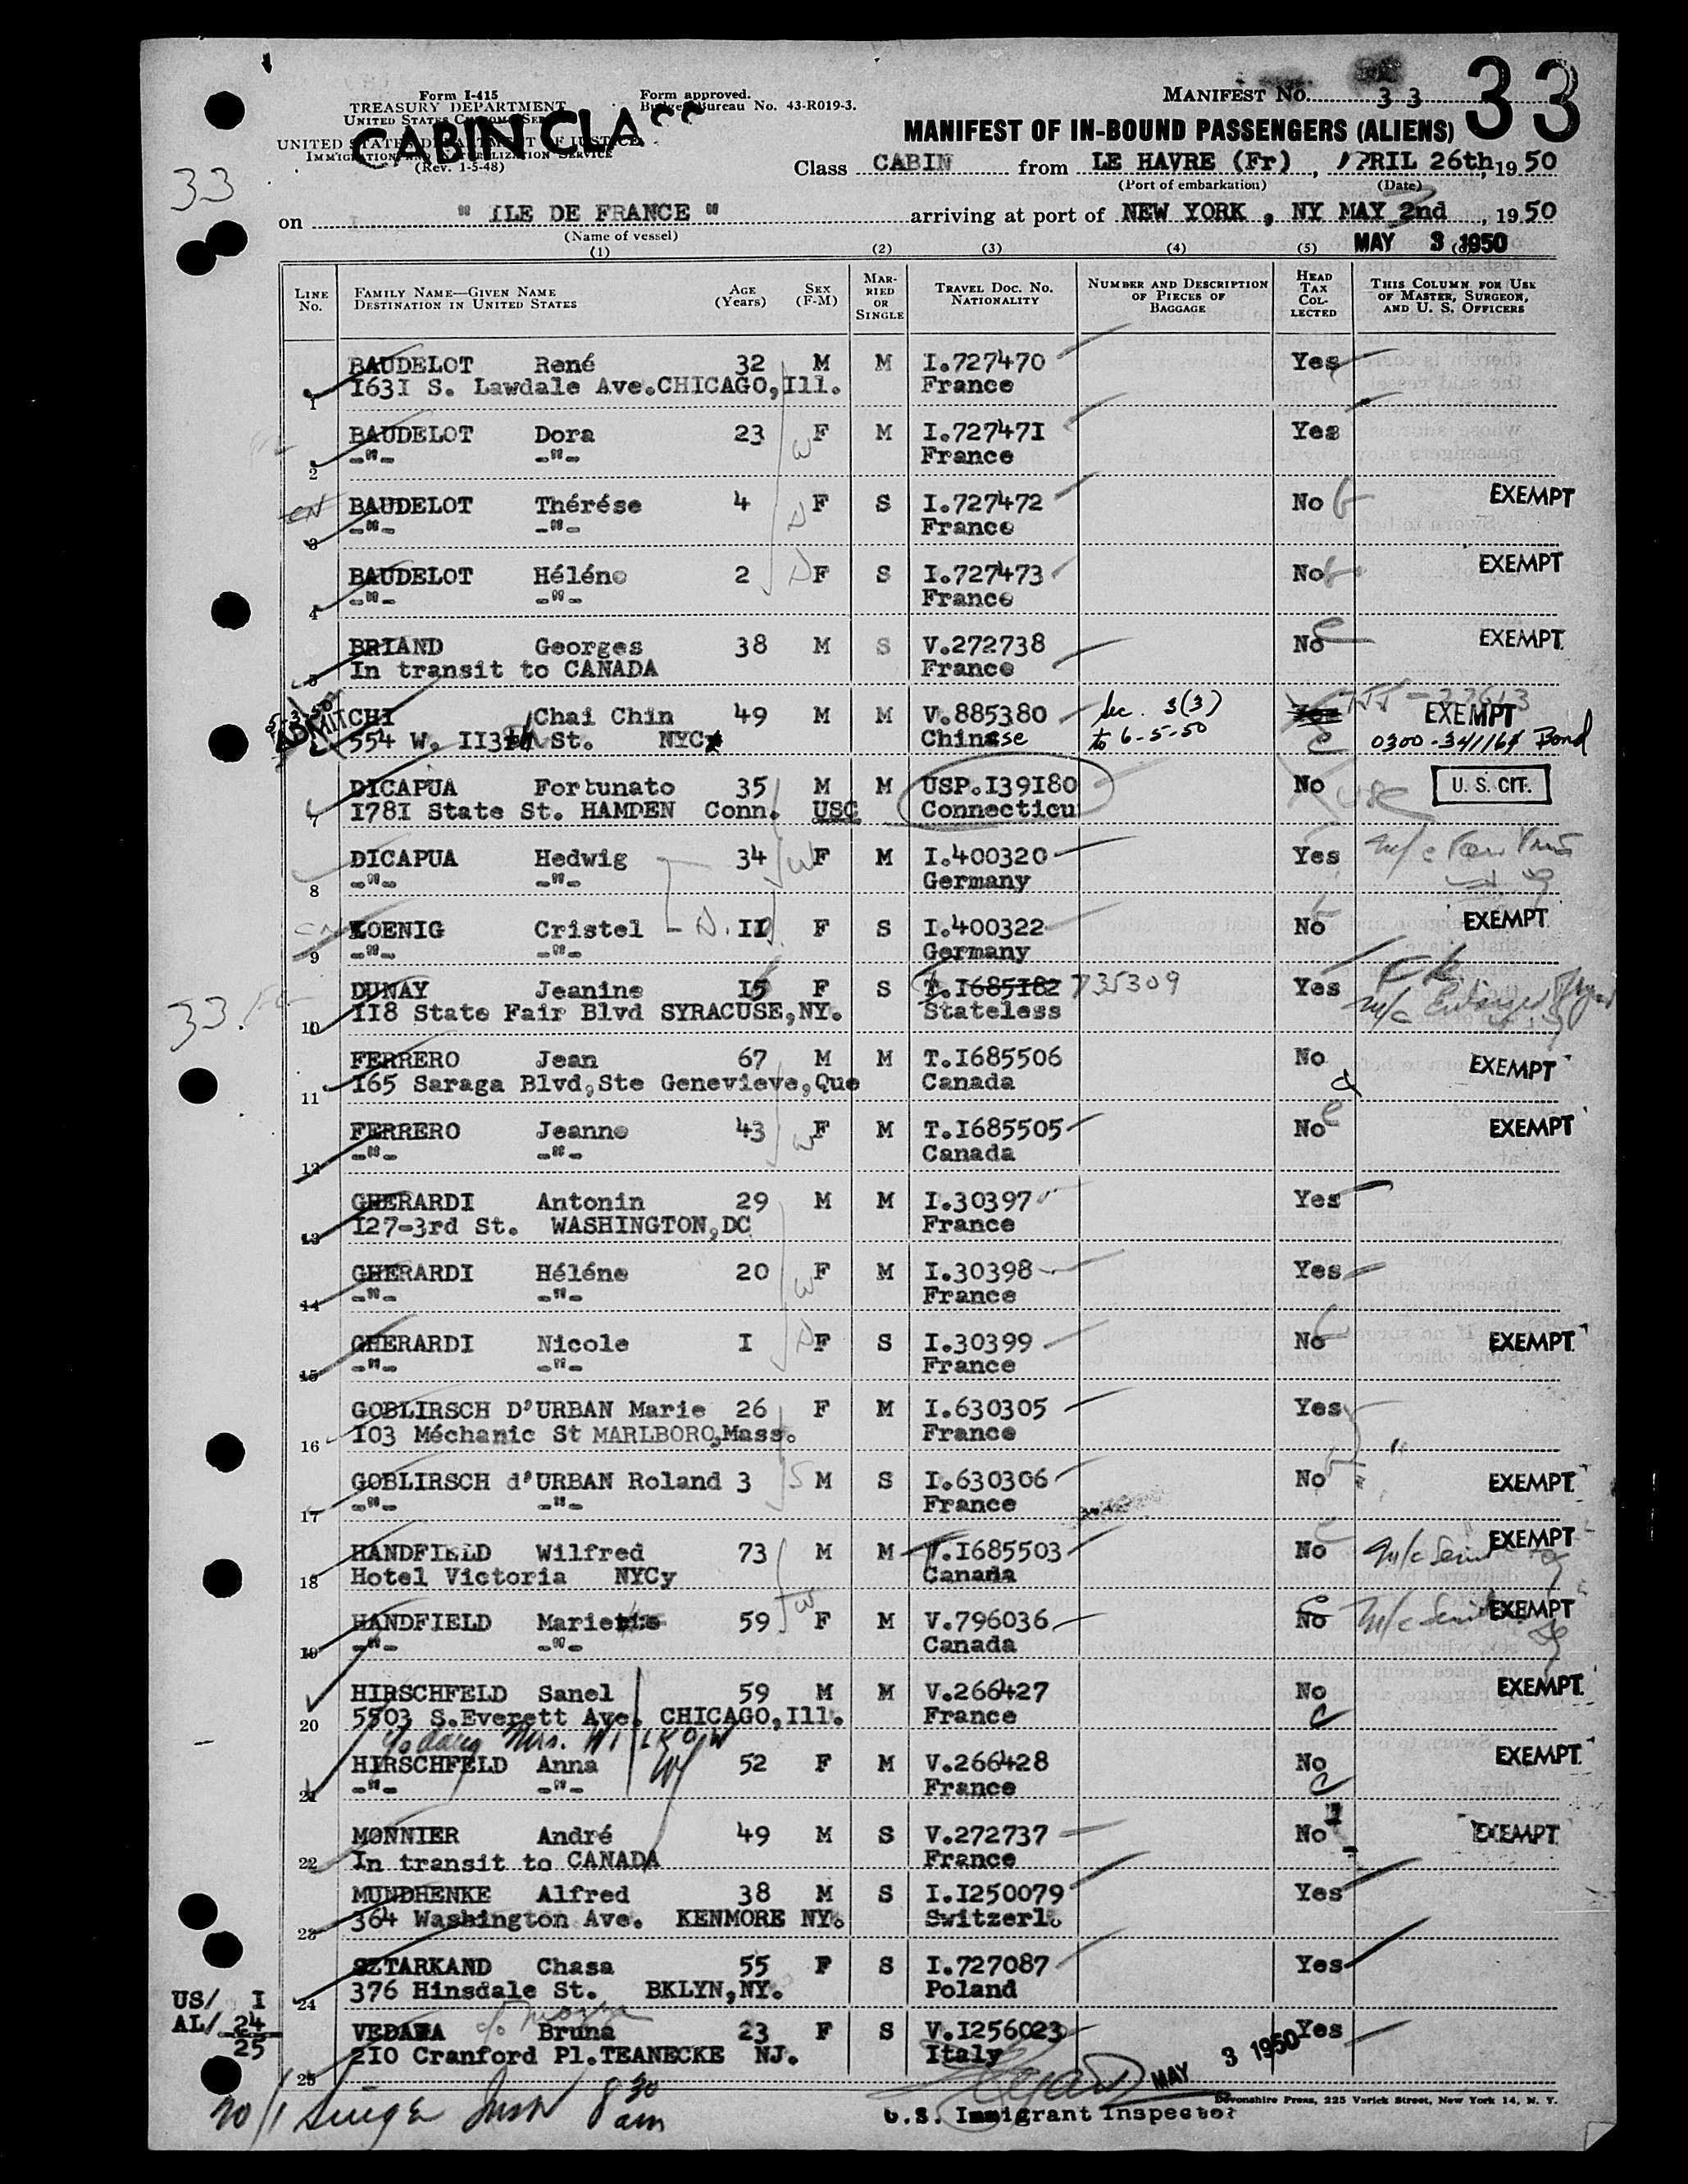 Form I-415
TREASURY DEPARTMENT
UNITED STATES CUSTOMS SERVICE
UNITED STATES DEPARTMENT OF JUSTICE
IMMIGRATION AND NATURALIZATION SERVICE
(Rev. 1-5-48)
CABIN CLASS
Form approved.
Budget Bureau No. 43-R019-3.
MANIFEST NO. 33
33
33
MANIFEST OF IN-BOUND PASSENGERS (ALIENS)
Class CABIN from LE HAVRE (Fr), APRIL 26th, 1950
(Port of embarkation) (Date)
on " ILE DE FRANCE " arriving at port of NEW YORK, NY MAY 2nd, 1950
(Name of vessel)
MAY 3 1950
(1) (2) (3) (4) (5) (6)
LINE NO. FAMILY NAME—GIVEN NAME DESTINATION IN UNITED STATES AGE (Years) SEX (F-M) MARRIED OR SINGLE TRAVEL DOC. NO. NATIONALITY NUMBER AND DESCRIPTION OF PIECES OF BAGGAGE HEAD TAX COLLECTED THIS COLUMN FOR USE OF MASTER, SURGEON, AND U. S. OFFICERS
BAUDELOT René 32 M M I.727470 Yes
1 I63I S. Lawdale Ave.CHICAGO,Ill. France
BAUDELOT Dora 23 W F M I.72747I Yes
2 -"- -"- France
CN BAUDELOT Thérése 4 D F S I.727472 No EXEMPT
3 -"- -"- France
BAUDELOT Héléne 2 D F S I.727473 No EXEMPT
4 -"- -"- France
BRIAND Georges 38 M S V.272738 No EXEMPT
5 In transit to CANADA France
5-3-50 ADMIT CHI Chai Chin 49 M M V.885380 Sec. 3(3) EXEMPT
554 W. II3th St. NYC Chinese to 6-5-50 0300-341161 Bond
DICAPUA Fortunato 35 M M USP.I39I80 No USC U. S. CIT.
7 I78I State St. HAMDEN Conn. USC Connecticu
DICAPUA Hedwig 34 W F M I.400320 Yes
8 -"- -"- Germany
KOENIG Cristel D. II F S I.400322 No EXEMPT
9 -"- -"- Germany
DUNAY Jeanine I5 F S T.I685I82 735309 Yes
10 II8 State Fair Blvd SYRACUSE,NY. Stateless
33.
FERRERO Jean 67 M M T.I685506 No EXEMPT
11 I65 Saraga Blvd,Ste Genevieve,Que Canada
FERRERO Jeanne 43 W F M T.I685505 No EXEMPT
12 -"- -"- Canada
GHERARDI Antonin 29 M M I.30397 Yes
13 I27-3rd St. WASHINGTON,DC France
GHERARDI Héléne 20 W F M I.30398 Yes
14 -"- -"- France
GHERARDI Nicole I D F S I.30399 No EXEMPT
15 -"- -"- France
GOBLIRSCH D'URBAN Marie 26 F M I.630305 Yes
16 I03 Méchanic St MARLBORO,Mass. France
GOBLIRSCH d'URBAN Roland 3 S M S I.630306 No EXEMPT
17 -"- -"- France
HANDFIELD Wilfred 73 M M T.I685503 No EXEMPT
18 Hotel Victoria NYCy Canada
HANDFIELD Marie 59 W F M V.796036 No EXEMPT
19 -"- -"- Canada
HIRSCHFELD Sanel 59 M M V.266427 No EXEMPT
20 5503 S.Everett Ave. CHICAGO,Ill. France
Mrs. WILKOW
HIRSCHFELD Anna W 52 F M V.266428 No EXEMPT
21 -"- -"- France
MONNIER André 49 M S V.272737 No EXEMPT
22 In transit to CANADA France
MUNDHENKE Alfred 38 M S I.I250079 Yes
23 364 Washington Ave. KENMORE NY. Switzerl.
SZTARKAND Chasa 55 F S I.727087 Yes
24 376 Hinsdale St. BKLYN,NY. Poland
US/ I
AL/ 24
25
VEDANA Bruna 23 F S V.I256023 Yes
25 2I0 Cranford Pl.TEANECKE NJ. Italy
MAY 3 1950
8 30 am
U.S. Immigrant Inspector
Devonshire Press, 225 Varick Street, New York 14, N. Y.